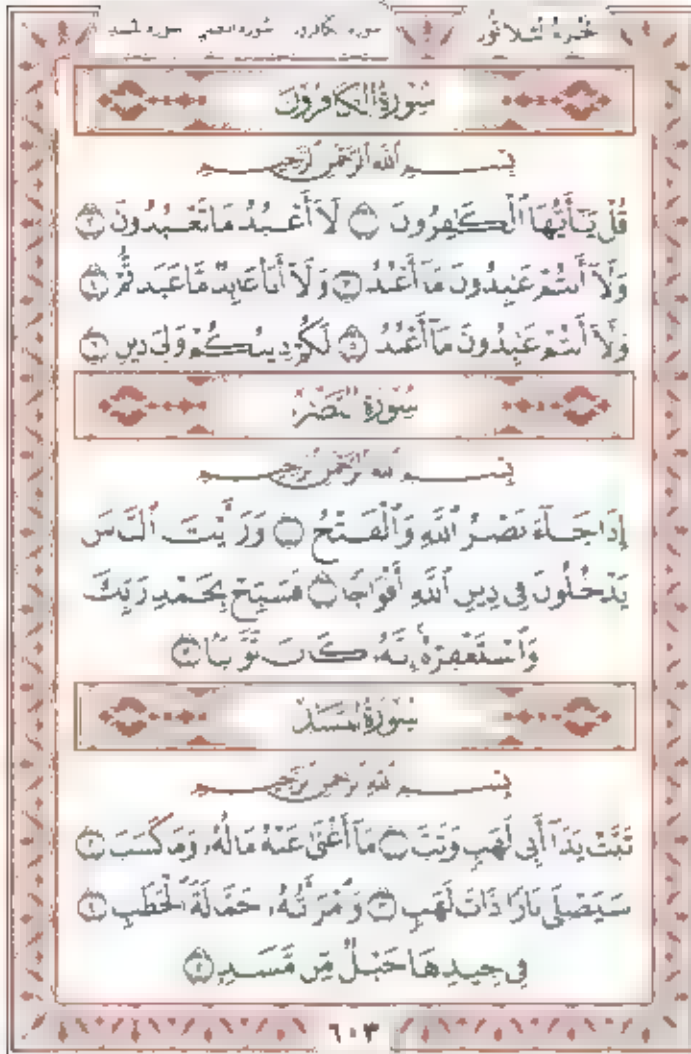 سورة الكافرون سورة النصر سورة المسد الجزء الثلاثون
سُورَةُ الكَافِرُونَ
بِسْمِ ٱللَّهِ ٱلرَّحْمَٰنِ ٱلرَّحِيمِ
قُلْ يَٰٓأَيُّهَا ٱلْكَٰفِرُونَ ١ لَآ أَعْبُدُ مَا تَعْبُدُونَ ٢
وَلَآ أَنتُمْ عَٰبِدُونَ مَآ أَعْبُدُ ٣ وَلَآ أَنَا۠ عَابِدٌ مَّا عَبَدتُّمْ ٤
وَلَآ أَنتُمْ عَٰبِدُونَ مَآ أَعْبُدُ ٥ لَكُمْ دِينُكُمْ وَلِىَ دِينِ ٦
سُورَةُ النَّصْرِ
بِسْمِ ٱللَّهِ ٱلرَّحْمَٰنِ ٱلرَّحِيمِ
إِذَا جَآءَ نَصْرُ ٱللَّهِ وَٱلْفَتْحُ ١ وَرَأَيْتَ ٱلنَّاسَ
يَدْخُلُونَ فِى دِينِ ٱللَّهِ أَفْوَاجًا ٢ فَسَبِّحْ بِحَمْدِ رَبِّكَ
وَٱسْتَغْفِرْهُ إِنَّهُۥ كَانَ تَوَّابًۢا ٣
سُورَةُ المَسَدِ
بِسْمِ ٱللَّهِ ٱلرَّحْمَٰنِ ٱلرَّحِيمِ
تَبَّتْ يَدَآ أَبِى لَهَبٍ وَتَبَّ ١ مَآ أَغْنَىٰ عَنْهُ مَالُهُۥ وَمَا كَسَبَ ٢
سَيَصْلَىٰ نَارًا ذَاتَ لَهَبٍ ٣ وَٱمْرَأَتُهُۥ حَمَّالَةَ ٱلْحَطَبِ ٤
فِى جِيدِهَا حَبْلٌ مِّن مَّسَدٍۭ ٥
٦٠٣